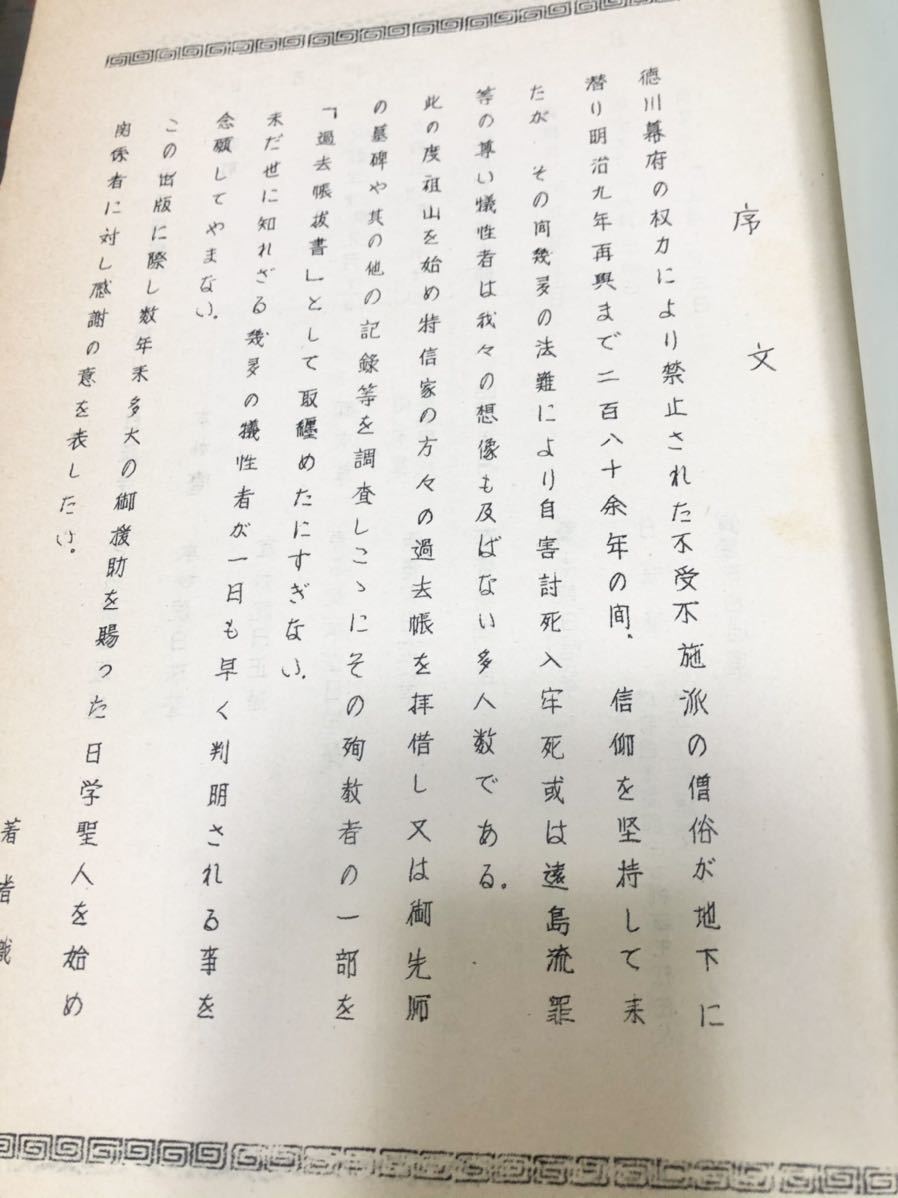 序文
徳川幕府の权力により禁止された不受不施派の僧俗が地下に
潜り明治九年再興まで二百八十余年の間、信仰を堅持して来
たが その間幾多の法難により自害討死入牢死或は遠島流罪
等の尊い犠性者は我々の想像も及ばない多人数である。
此の度祖山を始め特信家の方々の過去帳を拝借し又は御先師
の墓碑や其の他の記録等を調査しこゝにその殉教者の一部を
「過去帳抜書」として取纒めたにすぎない。
未だ世に知れざる幾多の犠性者が一日も早く判明される事を
念願してやまない。
この出版に際し数年来多大の御援助を賜った日学聖人を始め
関係者に対し感謝の意を表したい。
著者識